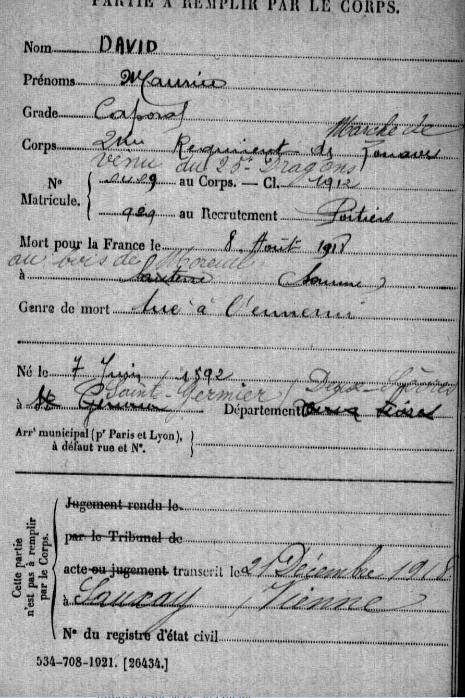 PARTIE À REMPLIR PAR LE CORPS.
Nom DAVID
Prénoms Maurice
Grade Caporal
Marche de
Corps 2me Régiment de Zouaves
venu du 25e Dragons
Nº Matricule. { au Corps. — Cl. 1912
929 au Recrutement Poitiers
Mort pour la France le 8 Août 1918
au bois de Moreuil
à (Somme)
Genre de mort tué à l'ennemi
Né le 7 Juin 1892
Saint-Germier / Deux-Sèvres
à St Germier Département Deux Sèvres
Arrt municipal (pr Paris et Lyon), à défaut rue et Nº. }
Cette partie n'est pas à remplir par le Corps. {
Jugement rendu le
par le Tribunal de
acte ou jugement transcrit le 21 Décembre 1918
à Vienne
Nº du registre d'état civil
534-708-1921. [26434.]